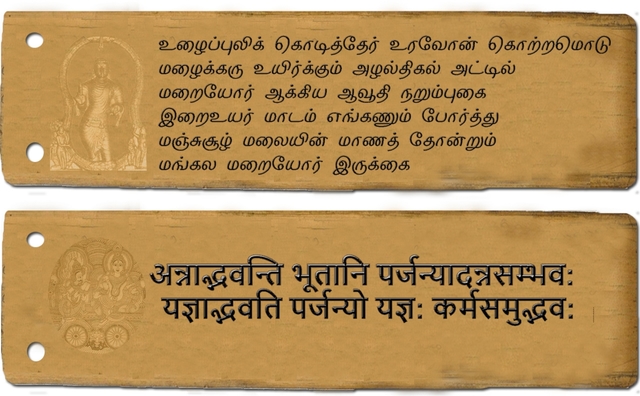 உழைப்புலிக் கொடித்தேர் உரவோன் கொற்றமொடு
மழைக்கரு உயிர்க்கும் அழல்திகல் அட்டில்
மறையோர் ஆக்கிய ஆவூதி நறும்புகை
இறைஉயர் மாடம் எங்கணும் போர்த்து
மஞ்சுசூழ் மலையின் மாணத் தோன்றும்
மங்கல மறையோர் இருக்கை
अन्नाद्भवन्ति भूतानि पर्जन्यादन्नसम्भव:
यज्ञाद्भवति पर्जन्यो यज्ञ: कर्मसमुद्भव: